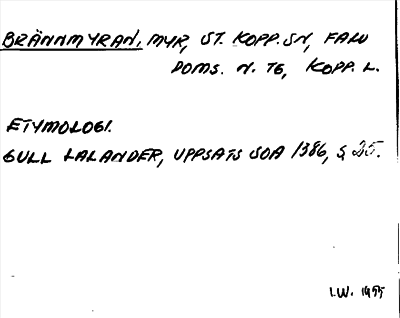 BRÄNNMYRAN, MYR, ST. KOPP. SN, FALU
DOMS. N. TG, KOPP. L.
ETYMOLOGI.
GULL LALANDER, UPPSATS SOA 1386, S. 25.
I.W. 1955